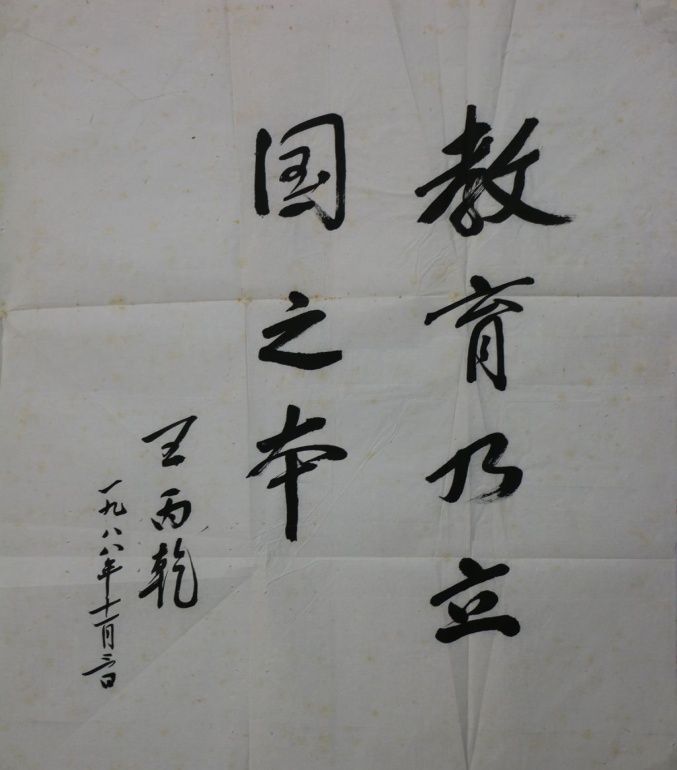 教育乃立
国之本
王丙乾
一九八八年十一月二日